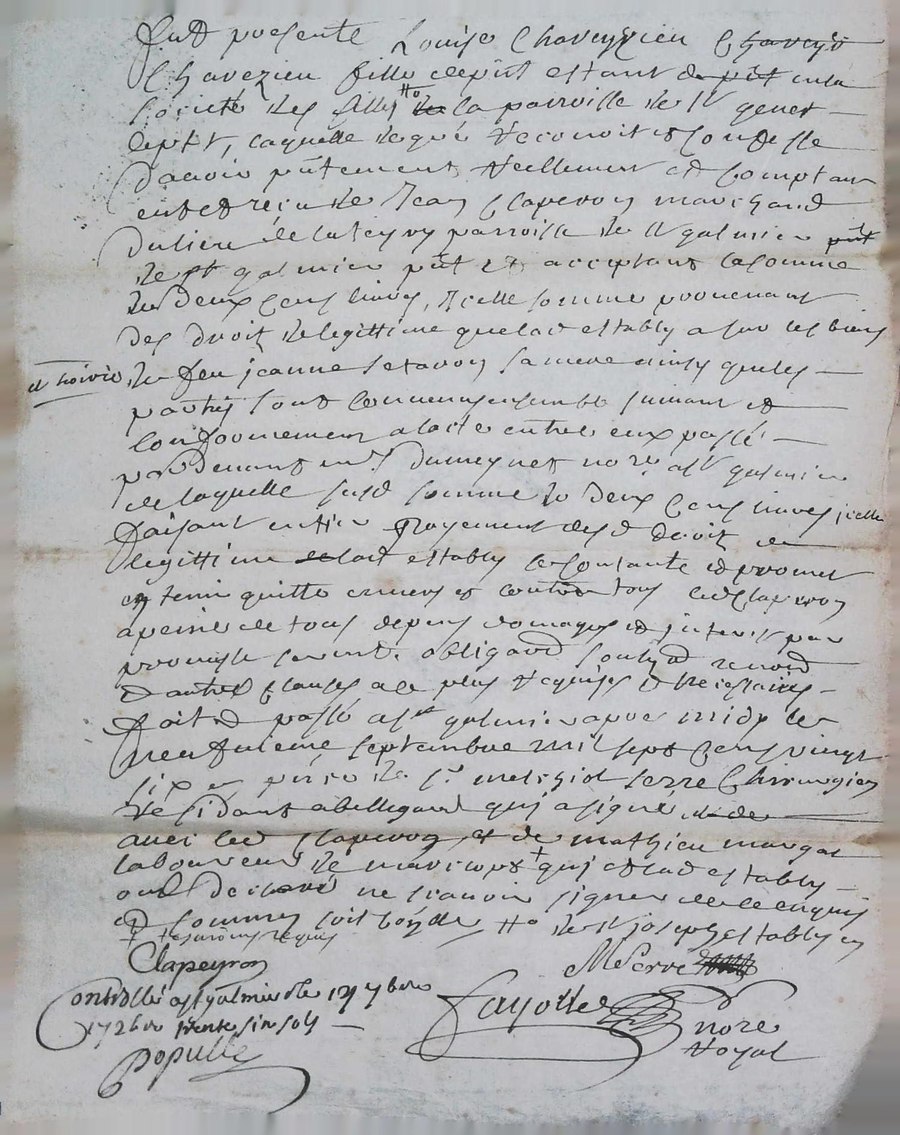 fut presente Louise Chaveyrieu Chaveyr
Chavezieu fille depnt estant de pnt en la
societé des filles ++o de la parroisse de St genet
lerpt, laquelle de gré reconoit et confesse
d'avoir pntement reellement et comptant
eust et reçu de Jean Clapeyron marchand
du lieu de la parroisse de St galmier pnt
de St galmier pnt et acceptant la somme
de deux cens livres, Icelle somme provenant
des droit de legittime que lad establyt a sur les biens
et hoirie de feu jeanne sa mere ainsy que les
parties sont convenu ensemble suivant et
conformement a l'acte entre eux passé
par devant me Dumeynet nore a St galmier
de laquelle susd somme de deux cens livres icelle
faisant entier payement desd droit de
legittime lad establyt se contante et promet
en tenir quitte envers et contre tous led Clapeyron
a peine de tous depens domages et interest par
promesse serment obligaon soub et renon
et autres clauses a ce plus requises et necessaires
fait et passé a St galmier apres midy le
neufvieme septembre mil sept cens vingt
six en pnce de sr serre Chirurgien
residant a bellegarde qui a signé
avec led Clapeyron et de mathieu
laboureur de + qui et lad establyt
ont declaré ne scavoir signer de ce enquis
et sommés soit ++o de St joseph establyt en
+ temoins requis
Clapeyron
MSerre
Controllé a St galmier le 12 7bre
1726 trente six sols
Fayolle
nore
royal
populle